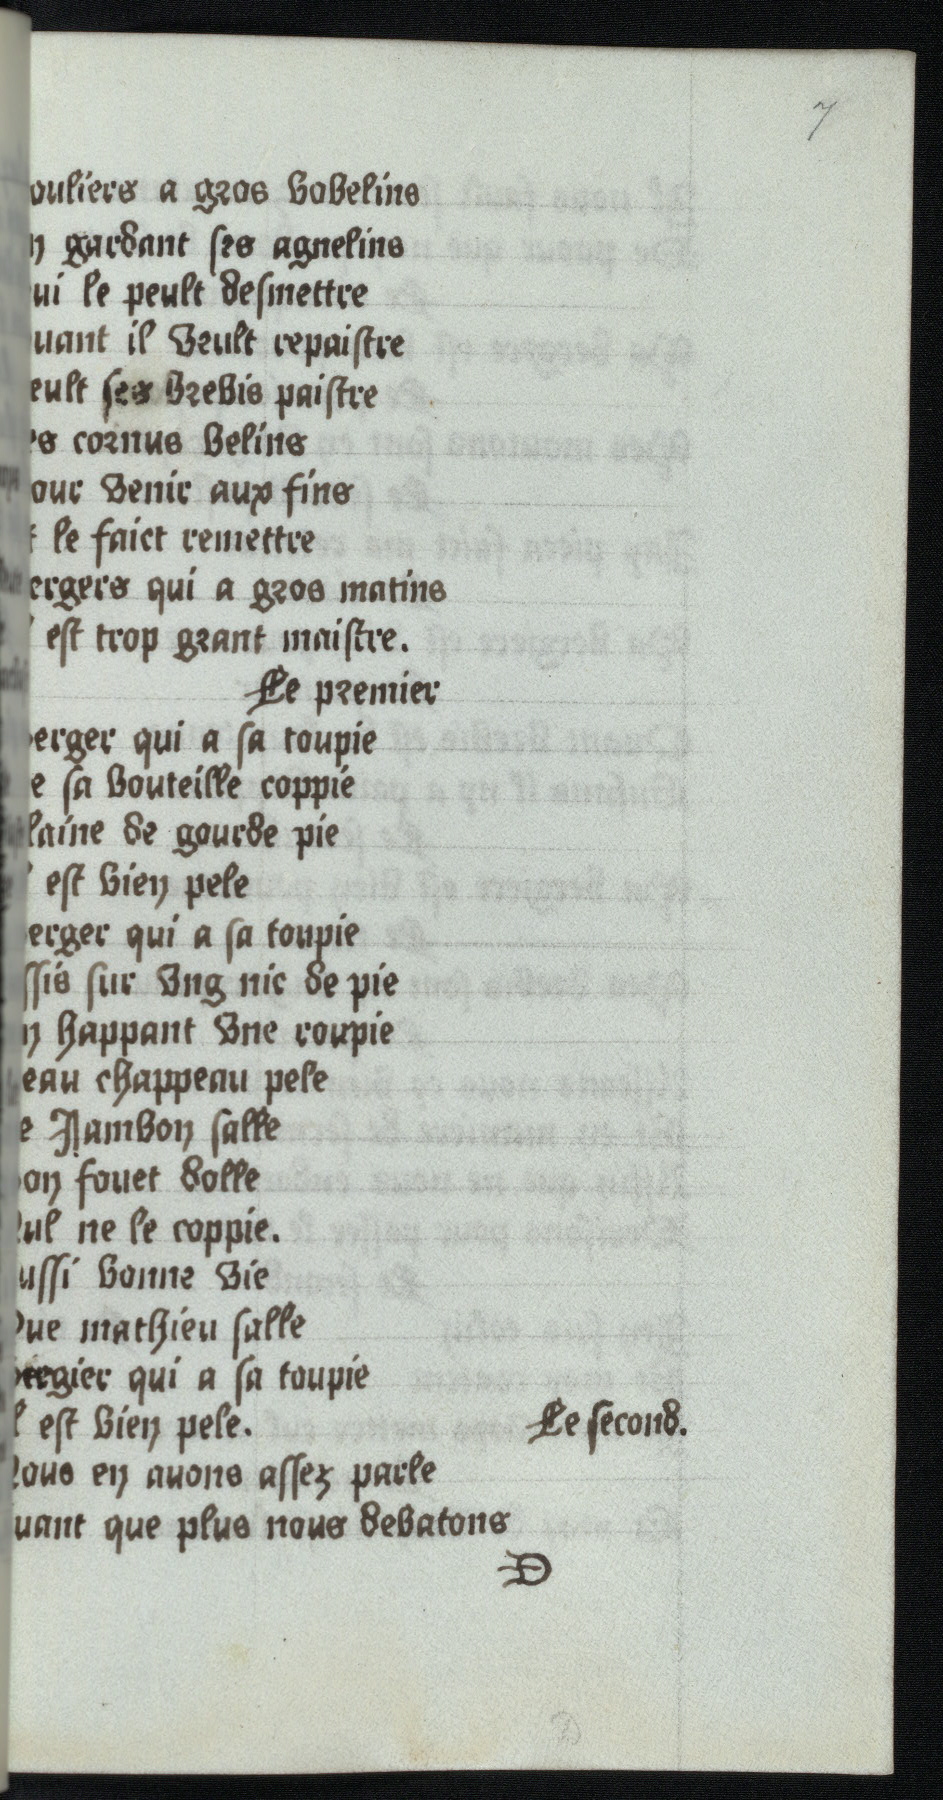 7
ouliers a gros bobelins
n gardant ses agnelins
ui le peult desmettre
uant il veult repaistre
eult ses brebis paistre
es cornus belins
our venir aux fins
t le faict remettre
ergers qui a gros matins
l est trop grant maistre.
Le premier
berger qui a sa toupie
e sa bouteille coppie
laine de gourde pie
l est bien pele
berger qui a sa toupie
ssis sur vng nic de pie
n happant vne roupie
eau chappeau pele
e Jambon salle
bon fouet dolle
ul ne le coppie.
ussi bonne vie
Que mathieu salle
bregier qui a sa toupie
l est bien pele. Le second.
Nous en auons assez parle
uant que plus nous debatons
D
D